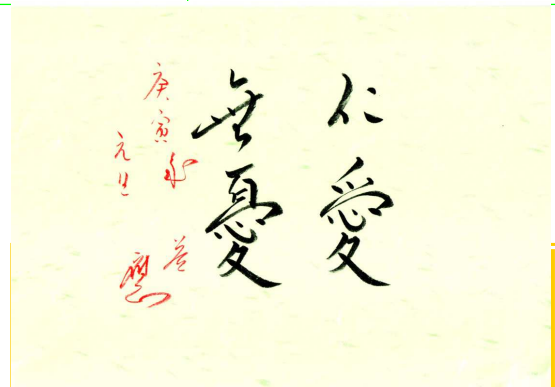 仁愛
無憂
庚寅年
元旦